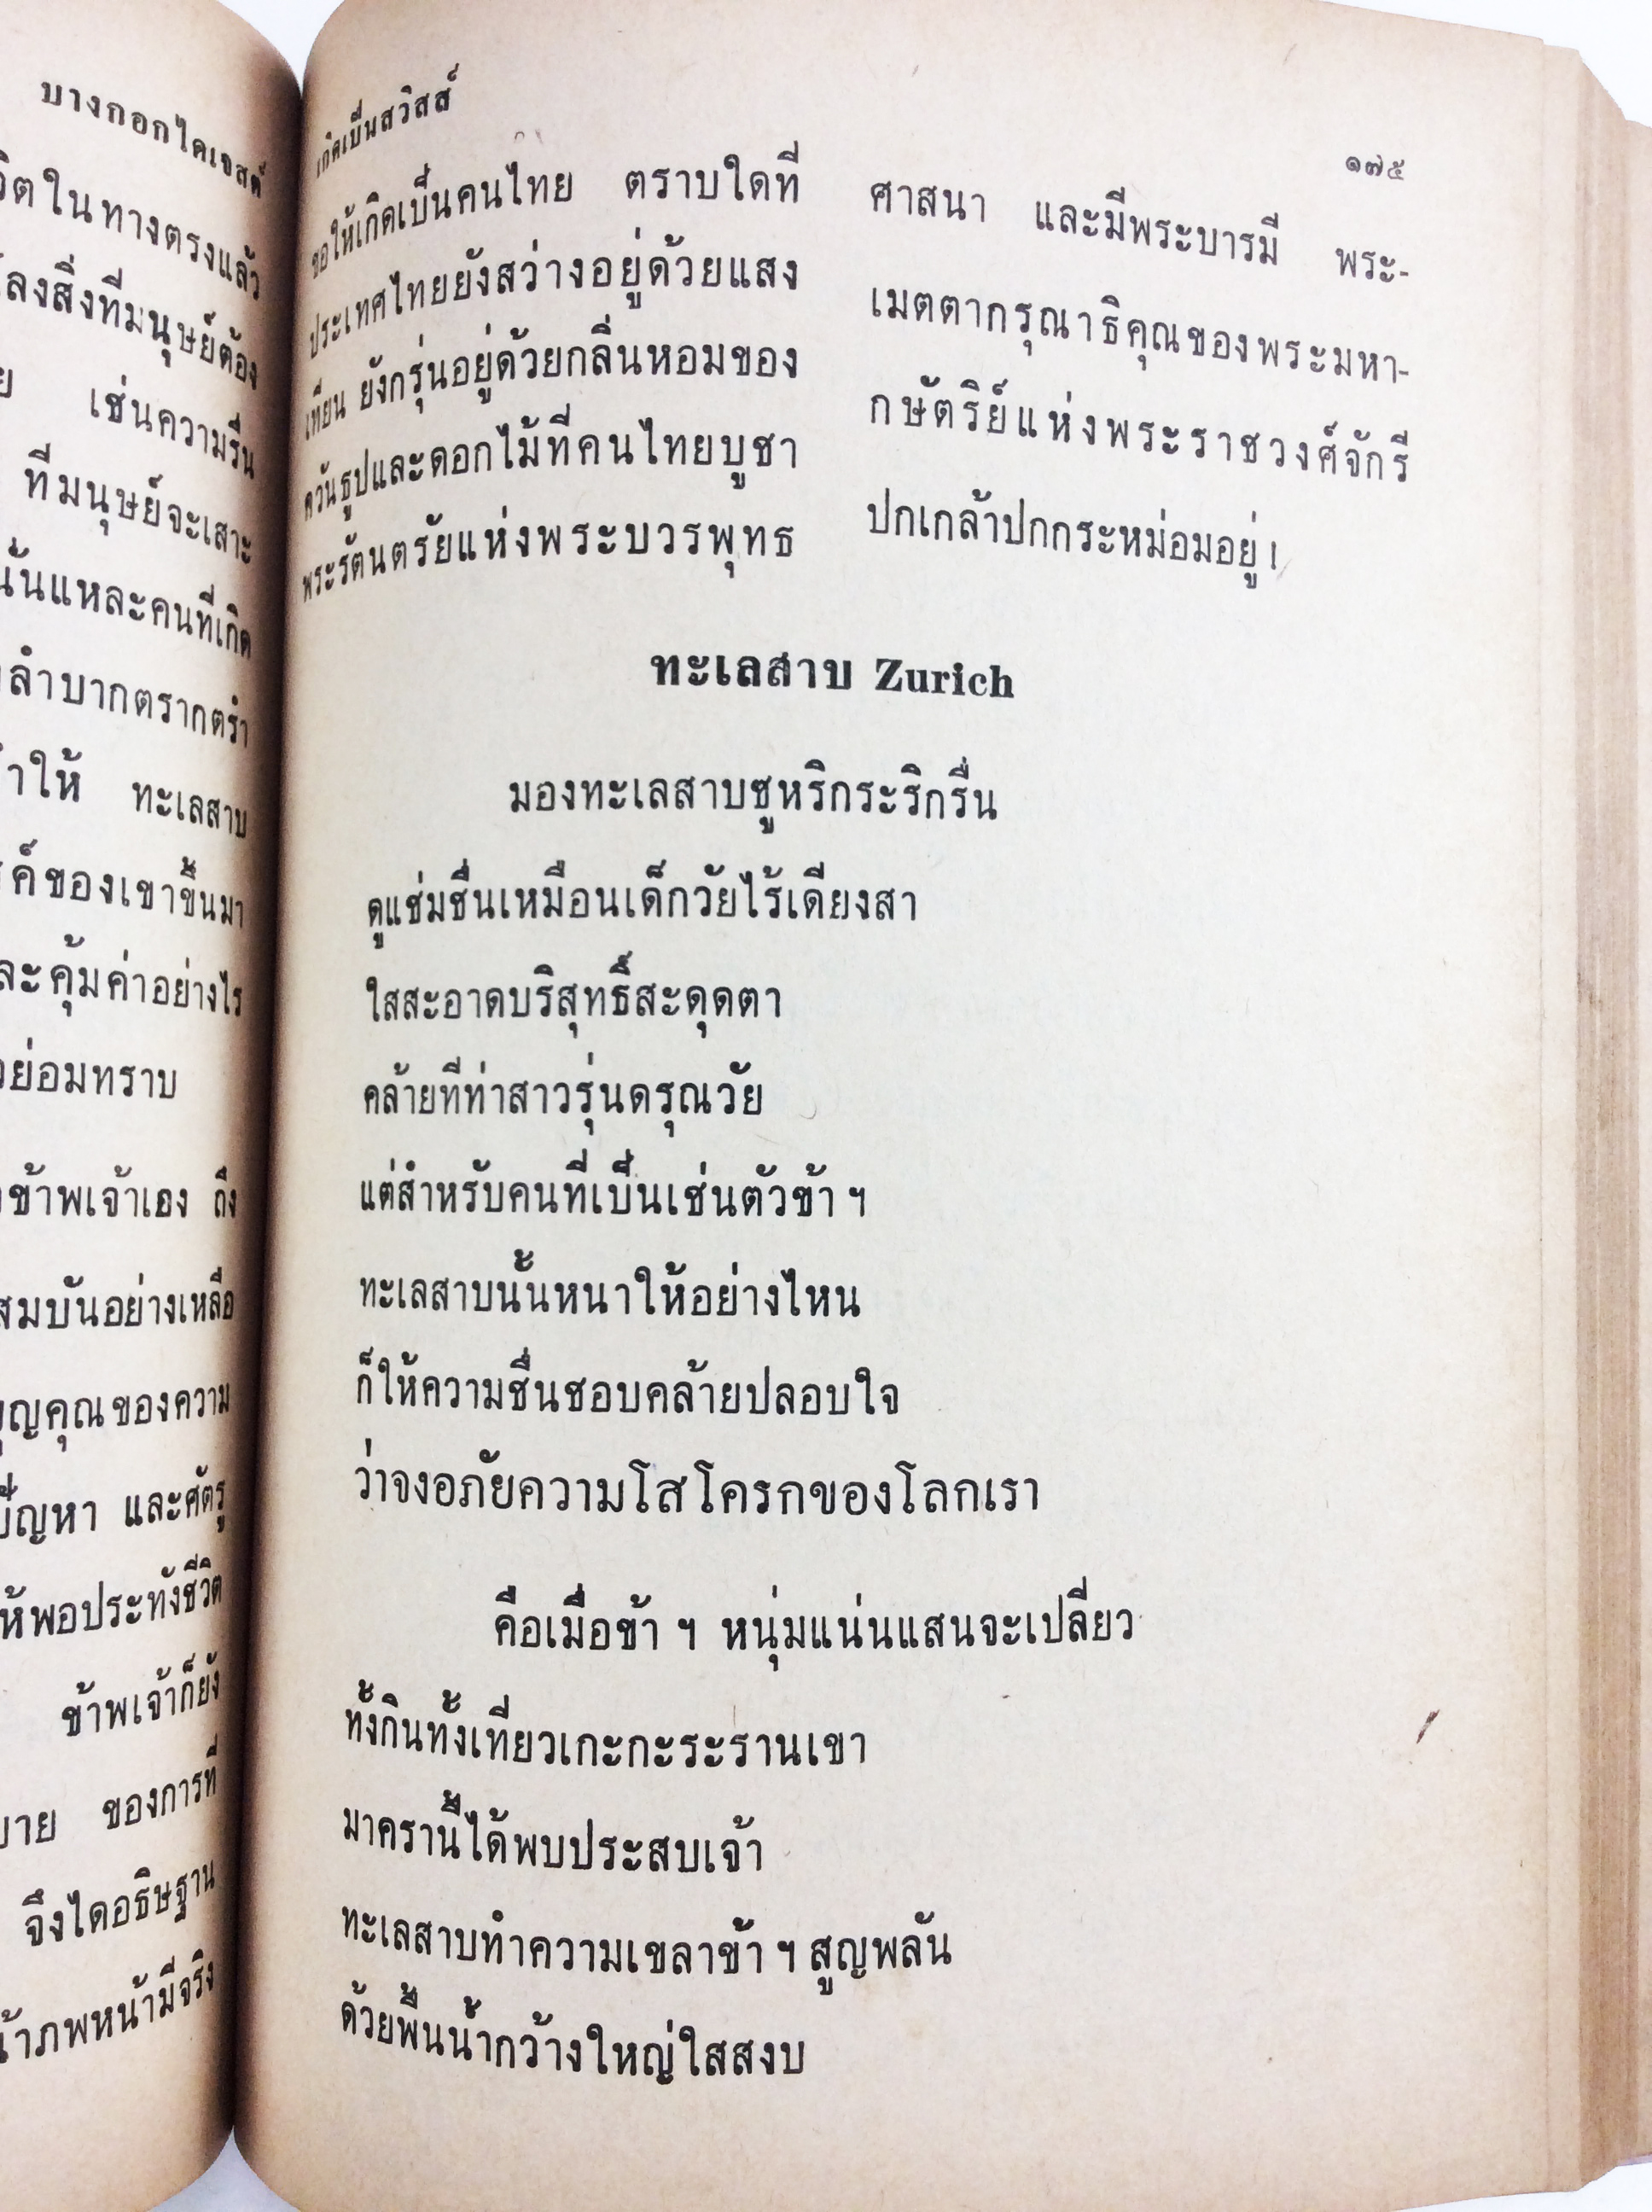 บางกอกไดเจสต์
ในทางตรงแล้ว
สิ่งที่มนุษย์ต้อง
เช่นความรื่น
ที่มนุษย์จะเสาะ
นั้นแหละคนที่เกิด
ลำบากตรากตรำ
ทะเลสาบ
ของเขาขึ้นมา
และคุ้มค่าอย่างไร
ย่อมทราบ
ข้าพเจ้าเอง ถึง
อย่างเหลือ
บุญคุณของความ
ปัญหา และศัตรู
ให้พอประทังชีวิต
ข้าพเจ้าก็ยัง
ของการที่
จึงไดอธิษฐาน
ภพหน้ามีจริง
เกิดเป็นสวิสส์
๑๗๕
ขอให้เกิดเป็นคนไทย ตราบใดที่
ประเทศไทยยังสว่างอยู่ด้วยแสง
เทียน ยังกรุ่นอยู่ด้วยกลิ่นหอมของ
ควันธูปและดอกไม้ที่คนไทยบูชา
พระรัตนตรัยแห่งพระบวรพุทธ
ศาสนา และมีพระบารมี พระ-
เมตตากรุณาธิคุณของพระมหา-
กษัตริย์แห่งพระราชวงศ์จักรี
ปกเกล้าปกกระหม่อมอยู่ !
ทะเลสาบ Zurich
มองทะเลสาบซูหริกระริกรื่น
ดูแช่มชื่นเหมือนเด็กวัยไร้เดียงสา
ใสสะอาดบริสุทธิ์สะดุดตา
คล้ายทีท่าสาวรุ่นดรุณวัย
แต่สำหรับคนที่เป็นเช่นตัวข้า ฯ
ทะเลสาบนั้นหนาให้อย่างไหน
ก็ให้ความชื่นชอบคล้ายปลอบใจ
ว่าจงอภัยความโสโครกของโลกเรา
คือเมื่อข้า ฯ หนุ่มแน่นแสนจะเปลี่ยว
ทั้งกินทั้งเที่ยวเกะกะระรานเขา
มาครานี้ได้พบประสบเจ้า
ทะเลสาบทำความเขลาข้า ฯ สูญพลัน
ด้วยพื้นน้ำกว้างใหญ่ใสสงบ